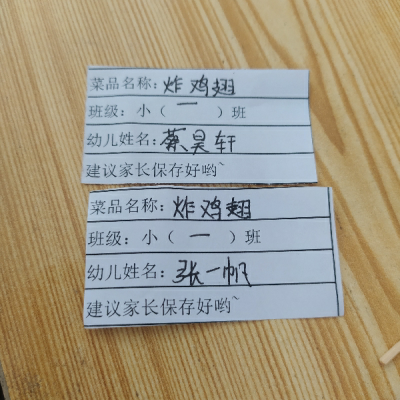 菜品名称：炸鸡翅
班级：小（一）班
幼儿姓名：蔡昊轩
建议家长保存好哟~
菜品名称：炸鸡翅
班级：小（一）班
幼儿姓名：张一帆
建议家长保存好哟~